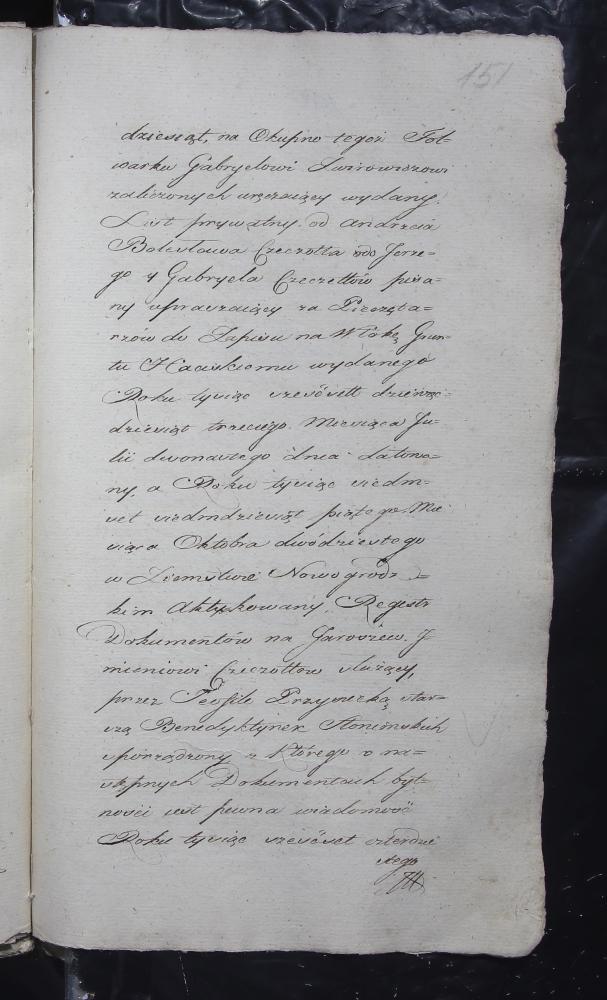 151
dziesiąt, na Okupno tegoż Fol-
warku Gabryelowi Swirowiczowi
zaliczonych uręczaiący wydany.
List prywatny od Andrzeia
Bolesława Czeczotta do Jerze-
go y Gabryela Czeczottów pisa-
ny upraszaiący za Pieczęta-
rzów do Zapisu na Włokę Grun-
tu Haciskiemu wydanego
Roku tysiąc sześćsett dziewięc-
dziesiąt trzeciego Miesiąca Ju-
lii dwonastego dnia datowa-
ny, a Roku tysiąc siedm-
set siedmdziesiąt piątego Mie-
siąca Oktobra dwódziestego
w Ziemstwie Nowogrodz-
kim Aktykowany. Regestr
Dokumentów na Jaroszew. J-
mieniowi Czeczottow służący,
przez Teofilę Przysiecką star-
szą Benedyktynek Słonimskich
sporządzony z Którego o na-
stępnych Dokumentach byt-
ności jest pewna wiadomość
Roku tysiąc sześćset czterdzie
stego